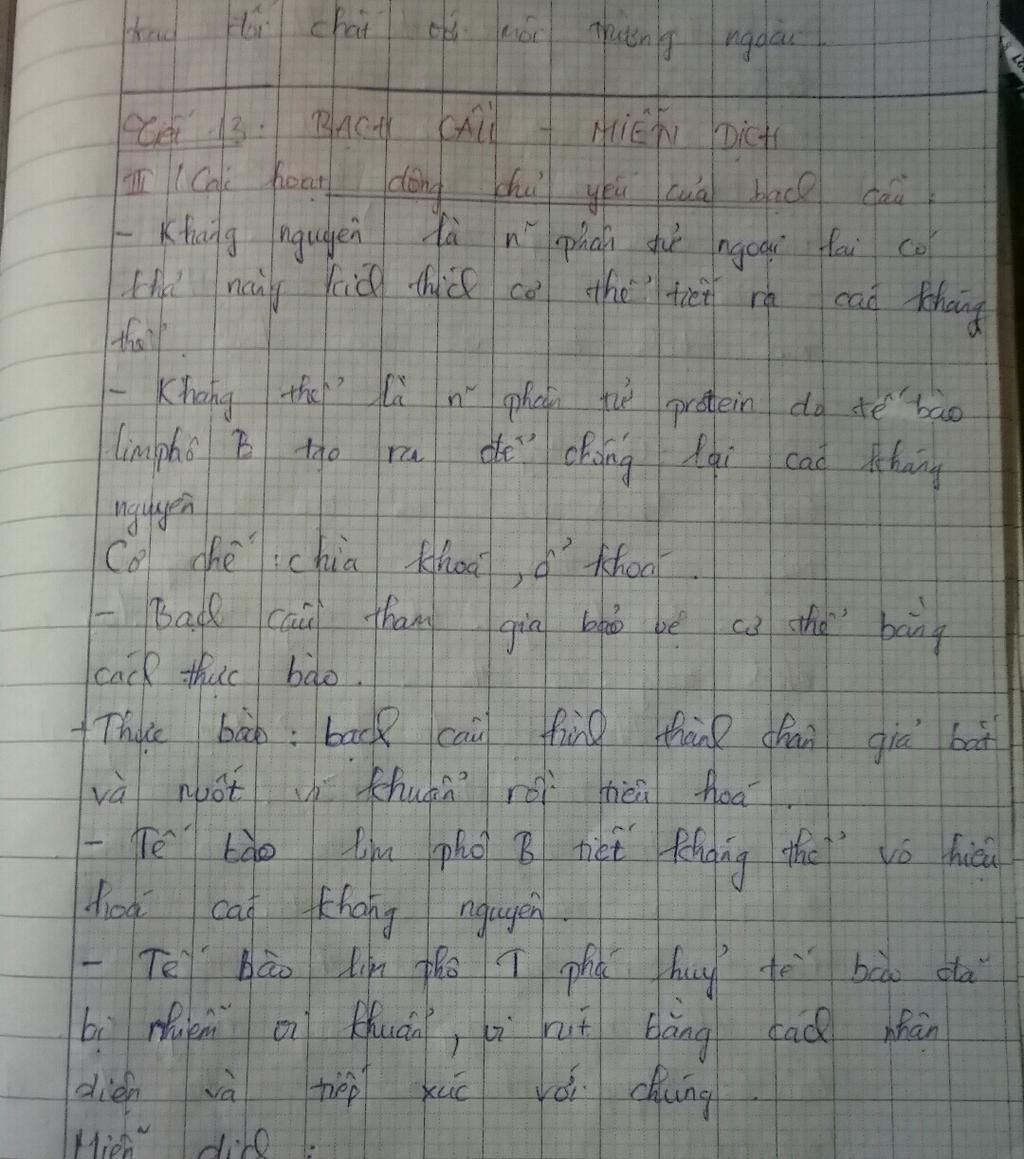 trao đổi chất với môi trường ngoài.
Tiết 13: BẠCH CẦU - MIỄN DỊCH
III / Các hoạt động chủ yếu của bạch cầu:
- Kháng nguyên là n~ phân tử ngoại lai có
khả năng kích thích cơ thể tiết ra các kháng
thể.
- Kháng thể là n~ phân tử protein do tế bào
limphô B tạo ra để chống lại các kháng
nguyên
Cơ chế: chìa khoá, ổ khoá.
- Bạch cầu tham gia bảo vệ cơ thể bằng
cách thực bào.
+ Thực bào: bạch cầu hình thành chân giả bắt
và nuốt vi khuẩn rồi tiêu hoá.
- Tế bào lim phô B tiết kháng thể vô hiệu
hoá các kháng nguyên.
- Tế bào lim phô T phá huỷ tế bào đã
bị nhiễm vi khuẩn, vi rút bằng cách nhận
diện và tiếp xúc với chúng.
Miễn dịch: